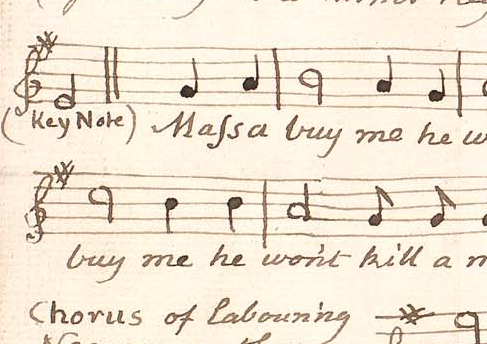 (Key Note) Maſsa buy me he
buy me he won't kill a
Chorus of Labouring